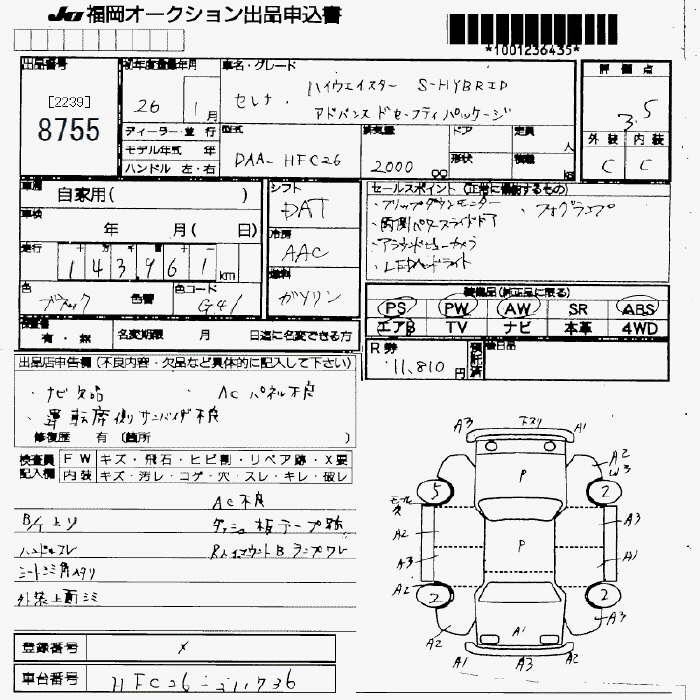 JU 福岡オークション出品申込書
*1001236435*
出品番号 初年度登録年月 車名・グレード 評価点
[2239]
8755
26年 1月
セレナ・ハイウェイスター S-HYBRID
アドバンスドセーフティパッケージ
3.5
ディーラー・並行 型式 排気量 ドア 定員 人 外装 内装
モデル年式 年 DAA-HFC26 2000 cc 形状 積載 kg C C
ハンドル 左・右
車歴 自家用( ) シフト DAT セールスポイント (正常に機能するもの)
・フリップダウンモニター ・フォグランプ
車検 年 月( 日) ・両側パワースライドドア
冷房 AAC ・アラウンドビューカメラ
走行 143,961 km ・LEDヘッドライト
色 ブラック 色替 色コード G41 燃料 ガソリン
装備品(純正品に限る)
PS PW AW SR ABS
エアB TV ナビ 本革 4WD
有・無 名変期限 月 日迄に名変できる方
R券 11,810円 預託済
出品店申告欄 (不良内容・欠品など具体的に記入して下さい)
・ナビ欠品 ・ACパネル不良
・運転席側サンバイザ不良
修復歴 有 (箇所 )
検査員 FW キズ・飛石・ヒビ割・リペア跡・X要
記入欄 内装 キズ・汚レ・コゲ・穴・スレ・キレ・破レ
AC不良
ダッシュ板テープ跡
ハンドルスレ
シート
外装上面
A3 A1
P A2 W3
5 2
モール欠
A2 A3
P
A3 A1
A2 2 2
A2 A1 A3
A1 A3 A2
登録番号
車台番号 HFC26-211736